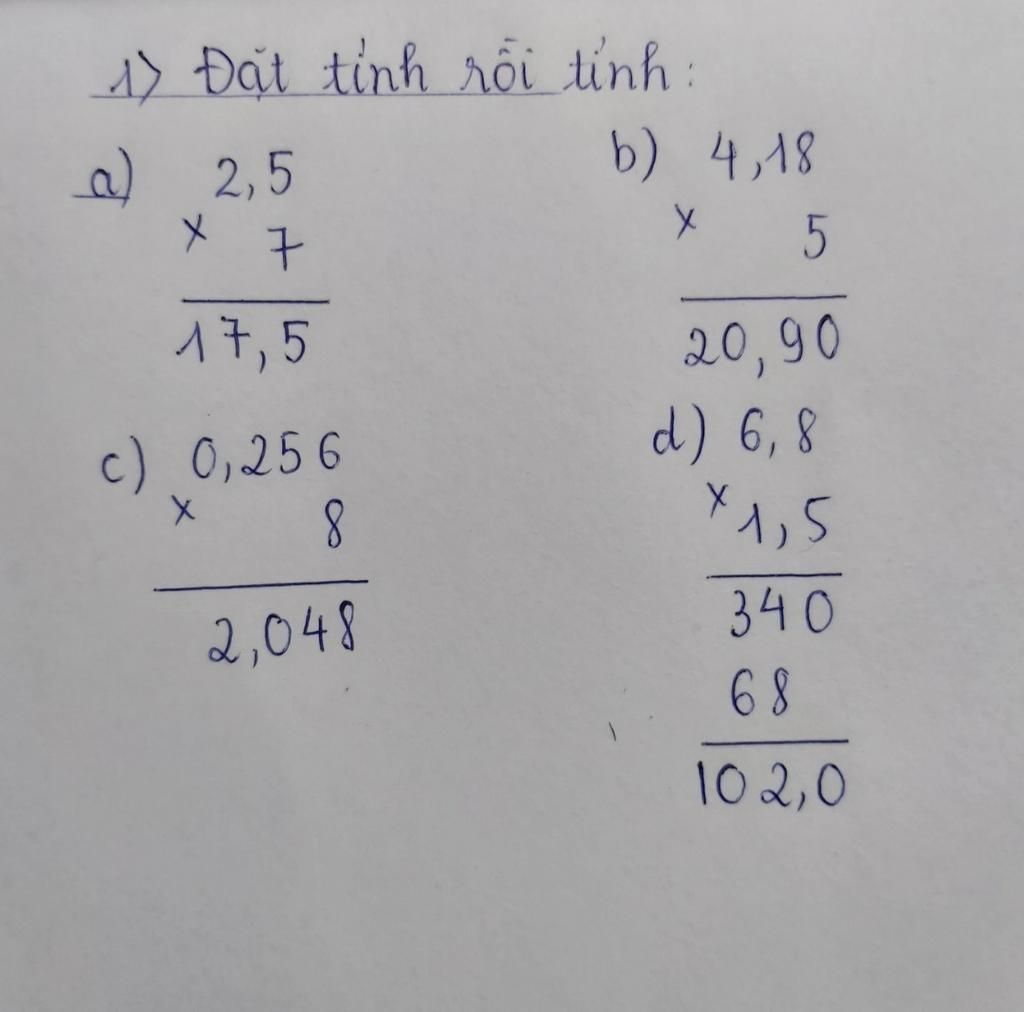 1) Đặt tính rồi tính:
a) 2,5
× 7
17,5
b) 4,18
× 5
20,90
c) 0,256
× 8
2,048
d) 6,8
× 1,5
340
68
102,0